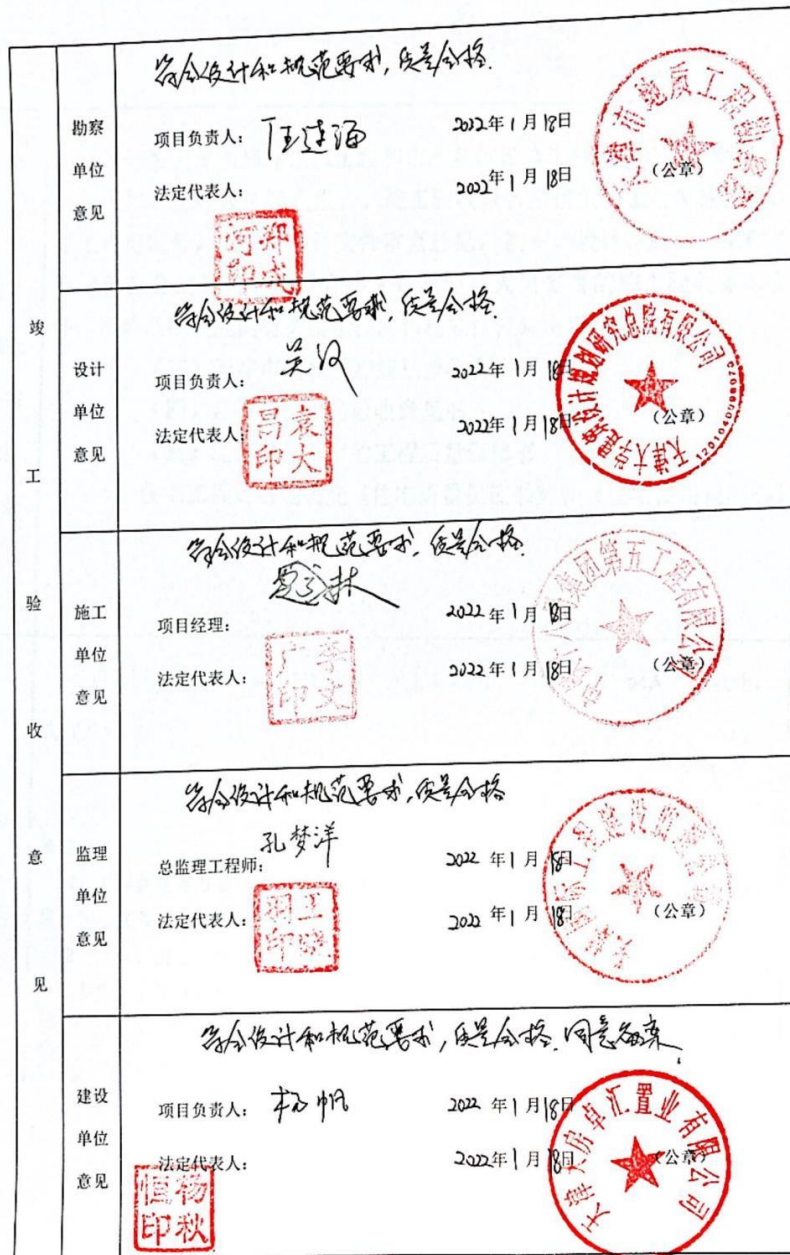 竣工验收意见
勘察单位意见
符合设计和规范要求,质量合格.
项目负责人:
2022年1月18日
法定代表人:
2022年1月18日
(公章)
郑成河印
设计单位意见
符合设计和规范要求,质量合格.
项目负责人:
2022年1月18日
法定代表人:
2022年1月18日
(公章)
袁大昌印
天津大学建筑设计规划研究总院有限公司
施工单位意见
符合设计和规范要求,质量合格.
项目经理:
2022年1月18日
法定代表人:
2022年1月18日
(公章)
李文广印
集团第五工程有限公司
监理单位意见
符合设计和规范要求,质量合格
总监理工程师: 孔梦洋
2022年1月18日
法定代表人:
2022年1月18日
(公章)
建设单位意见
符合设计和规范要求,质量合格.同意备案.
项目负责人: 杨帆
2022年1月18日
法定代表人:
2022年1月18日
(公章)
杨秋恒印
天津天房卓汇置业有限公司